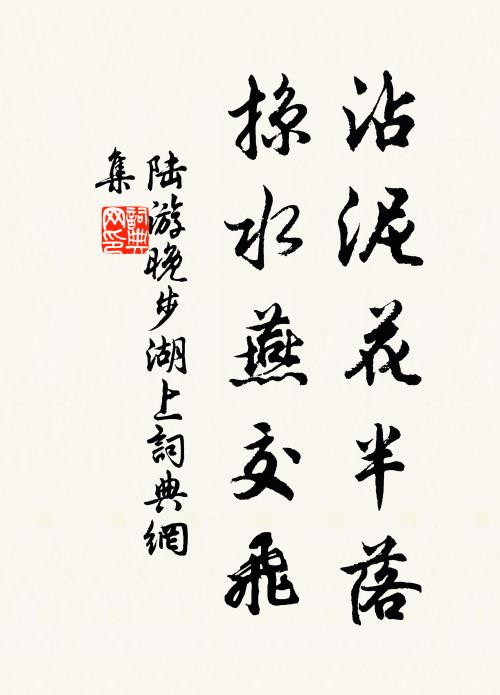 沾泥花半落
掠水燕交飛
陆游晚步湖上詞典網
集
詞典網印